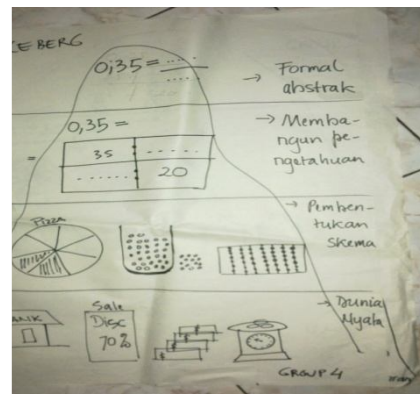 ICEBERG
0,35 = .....
.....
→ Formal
abstrak
0,35 =
→ Memba-
ngun pe-
ngetahuan
=
35
.....
.....
20
→ Pemben-
tukan
skema
Pizza
→ Dunia
Nyata
Sale
Disc
70%
GROUP 4